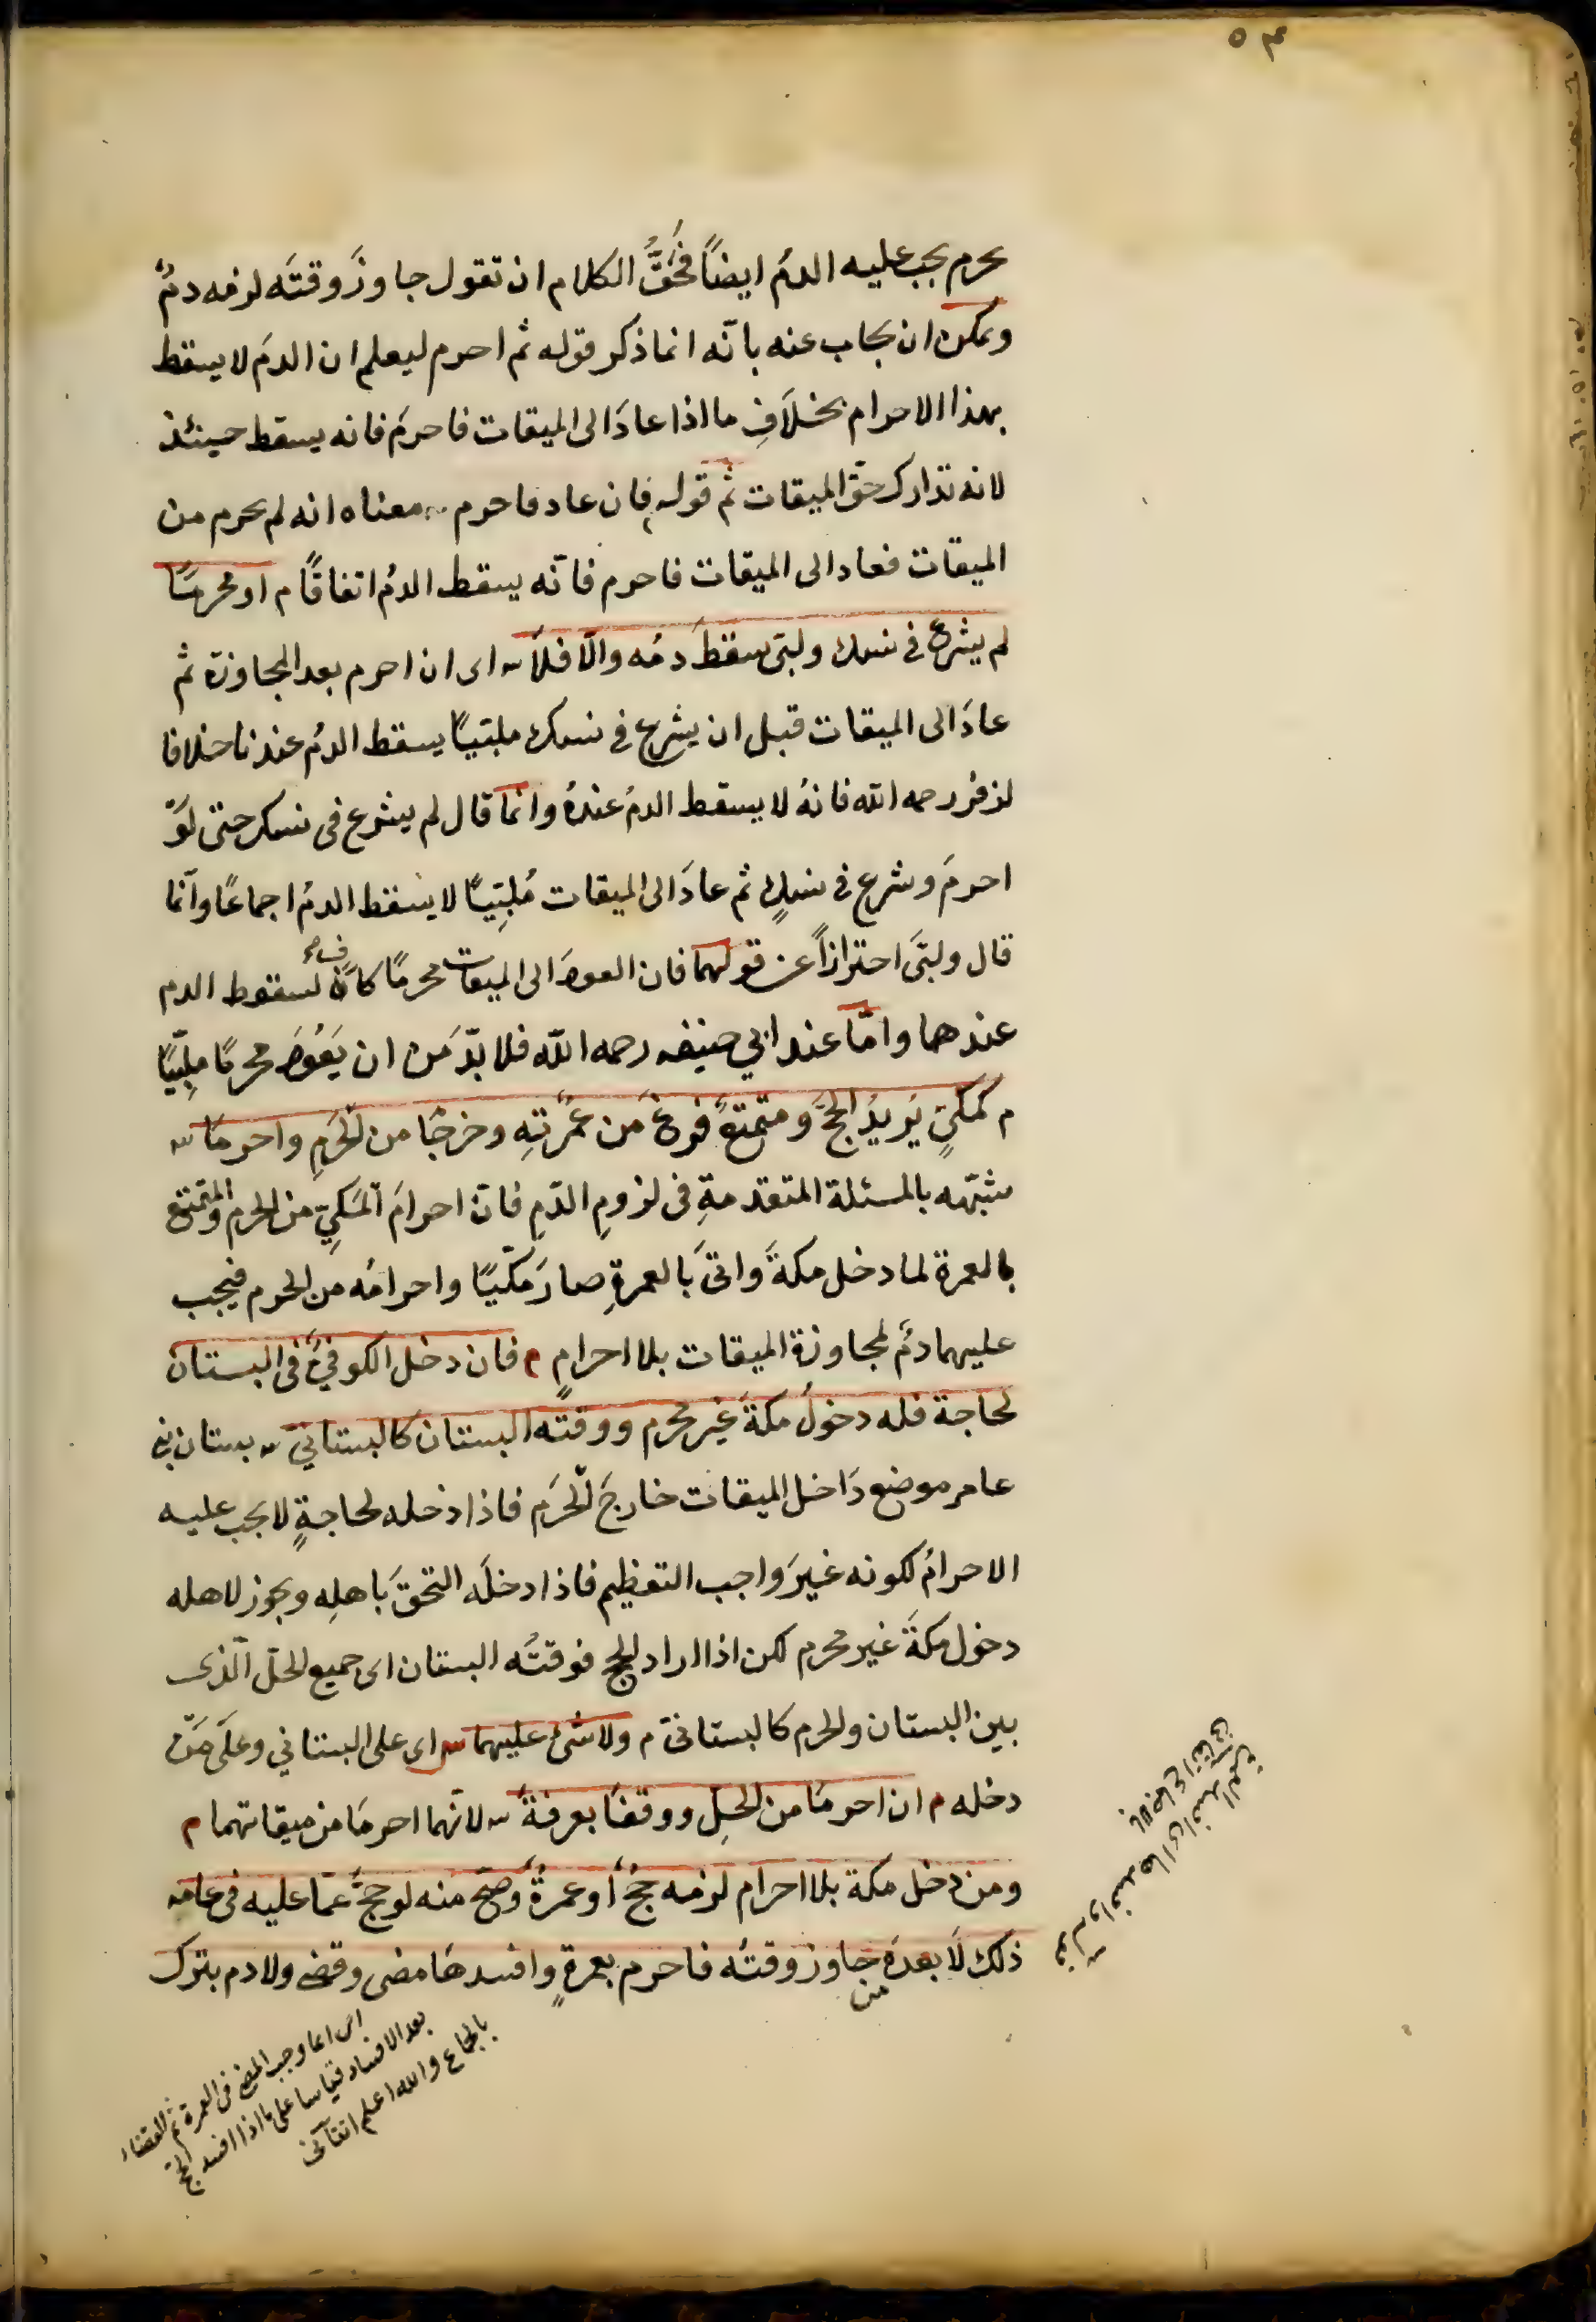 يحرم يجب عليه الدمُ ايضاً فحَقُّ الكلام ان تقول جاوزَ وقتَه لزمه دمٌ
ويمكن ان يجاب عنه بانّه انما ذكر قوله ثم احرم ليعلم ان الدمَ لا يسقط
بهذا الاحرام بخلَافِ ما اذا عادَ الى الميقات فاحرمَ فانه يسقط حينئذ
لانه تدارك حقّ الميقات ثم قوله فان عاد فاحرم معناه انه لم يحرم من
الميقات فعاد الى الميقات فاحرم فانّه يسقط الدمُ اتفاقًا م او محرمًا
لم يشرع في نسك ولبّى سقطَ دمُه والّا فلَا س اى ان احرم بعد المجاوزة ثم
عادَ الى الميقات قبل ان يشرع في نسك ملبّيًا يسقط الدمُ عندنا خلافا
لزفر رحمه الله فانهُ لا يسقط الدمُ عندهُ وانما قال لم يشرع فى نسك حتى لوْ
احرمَ وشرع في نسكٍ ثم عادَ الى الميقات مُلبِّيًا لا يسقط الدمُ اجماعًا وانّما
قال ولبّىَ احترازاً عن قولهما فان العودَ الى الميقات محرمًا كافٍ لسقوط الدم
عندهما وامّا عند ابي حنيفه رحمه الله فلا بدّ من ان يَعُودَ محرمًا ملبِّيًا
م كمكيٍّ يريدُ الحجَّ ومتمتّعٍ فرغَ من عُمْرَتِهِ وخرجَا من الحَرَمِ واحرمَا س
شبّهه بالمسئلة المتقدمةِ فى لزومِ الدّمِ فانّ احرامَ المَكيِّ من الحرم والمتمتع
بالعمرة لما دخل مكةَ واتىَ بالعمرةِ صارَ مكّيًا واحرامُه من الحرم فيجب
عليهما دمٌ لمجاوزة الميقات بلا احرامٍ م فان دخل الكوفيُّ فى البستان
لحاجة فله دخولُ مكةَ غيرَ محرم ووقتُه البستان كالبستانيّ س بستان بني
عامر موضع دَاخل الميقات خارجَ الحَرَم فاذا دخله لحاجةٍ لا يجب عليه
الاحرامُ لكونه غيرَ واجب التعظيم فاذا دخلَه التحقَ باهلِه ويجوز لاهله
دخول مكةَ غير محرم لكن اذا اراد الحج فوقتُه البستان اى جميع الحلّ الّذى
بين البستان والحرم كالبستانىّ م ولا شئ عليهما س اى على البستاني وعلَى مَن
دخله م ان احرمَا من الحِلِّ ووقفَا بعرفةَ س لانّهما احرمَا من ميقاتهما م
ومن دخل مكة بلا احرام لزمه حجٌّ أو عمرةٌ وصحّ منه لو حجَّ عمّا عليه فى عامه
ذلك لَا بعدَه جاوز وقتَه فاحرم بعمرةٍ وافسدهَا مضى وقضى ولا دم بترك
من
اى انما وجب المضي فى العمرة ثم القضاء
بعد الافساد قياسا على ما اذا افسد الحجّ
بالجماع والله اعلم اتقانى
وافسدها اى افسد العمرة
بالجماع اتقانى